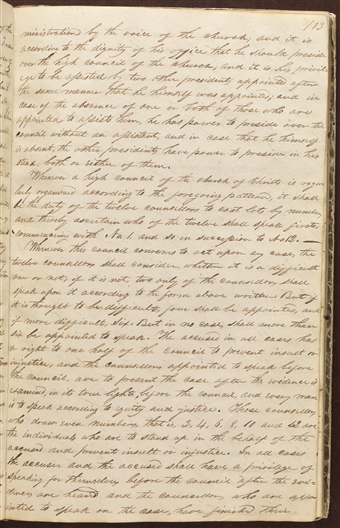 113
ministration by the voice of the church, and it is
according to the dignity of his office that he should preside
over the high council of the church, and it is his privil-
ege to be assisted by two other presidents, appointed after
the same manner that he himself was appointed; and in
case of the absence of one or both of those who are
appointed to assist him, he has power to preside over the
council without an assistant, and in case that he himself
is absent, the other presidents have power to preside in his
stead, both or either of them.
Whenever a high council of the church of Christ is regu-
larly organized according to the foregoing pattern, it shall
be the duty of the twelve councillors to cast lots by numbers,
and thereby ascertain who of the twelve shall speak first,
commencing with No. 1. and so in succession to No 12. —
Whenever this council convenes to act upon any case, the
twelve councellors shall consider whether it is a difficult
one or not; if it is not, two only of the councellors shall
speak upon it according to the form above written. But if
it is thought to be difficult, four shall be appointed, and
if more difficult, six. But in no case, shall more than
six be appointed to speak. The accused in all cases has
a right to one half of the council to prevent insult or
injustice; and the councellors appointed to speak before
the council, are to present the case after the evidence is
examined, in its true light, before the council, and every man
is to speak according to equity and justice. Those councellors
who draw even numbers, that is, 2, 4, 6, 8, 10 and 12 are
the individuals who are to stand up in the behalf of the
accused and prevent insult or injustice. In all cases
the accuser and the accused shall have a privilege of
speaking for themselves before the council after the evi-
dences are heard and the councellors who are appo-
inted to speak on the case, have finished their